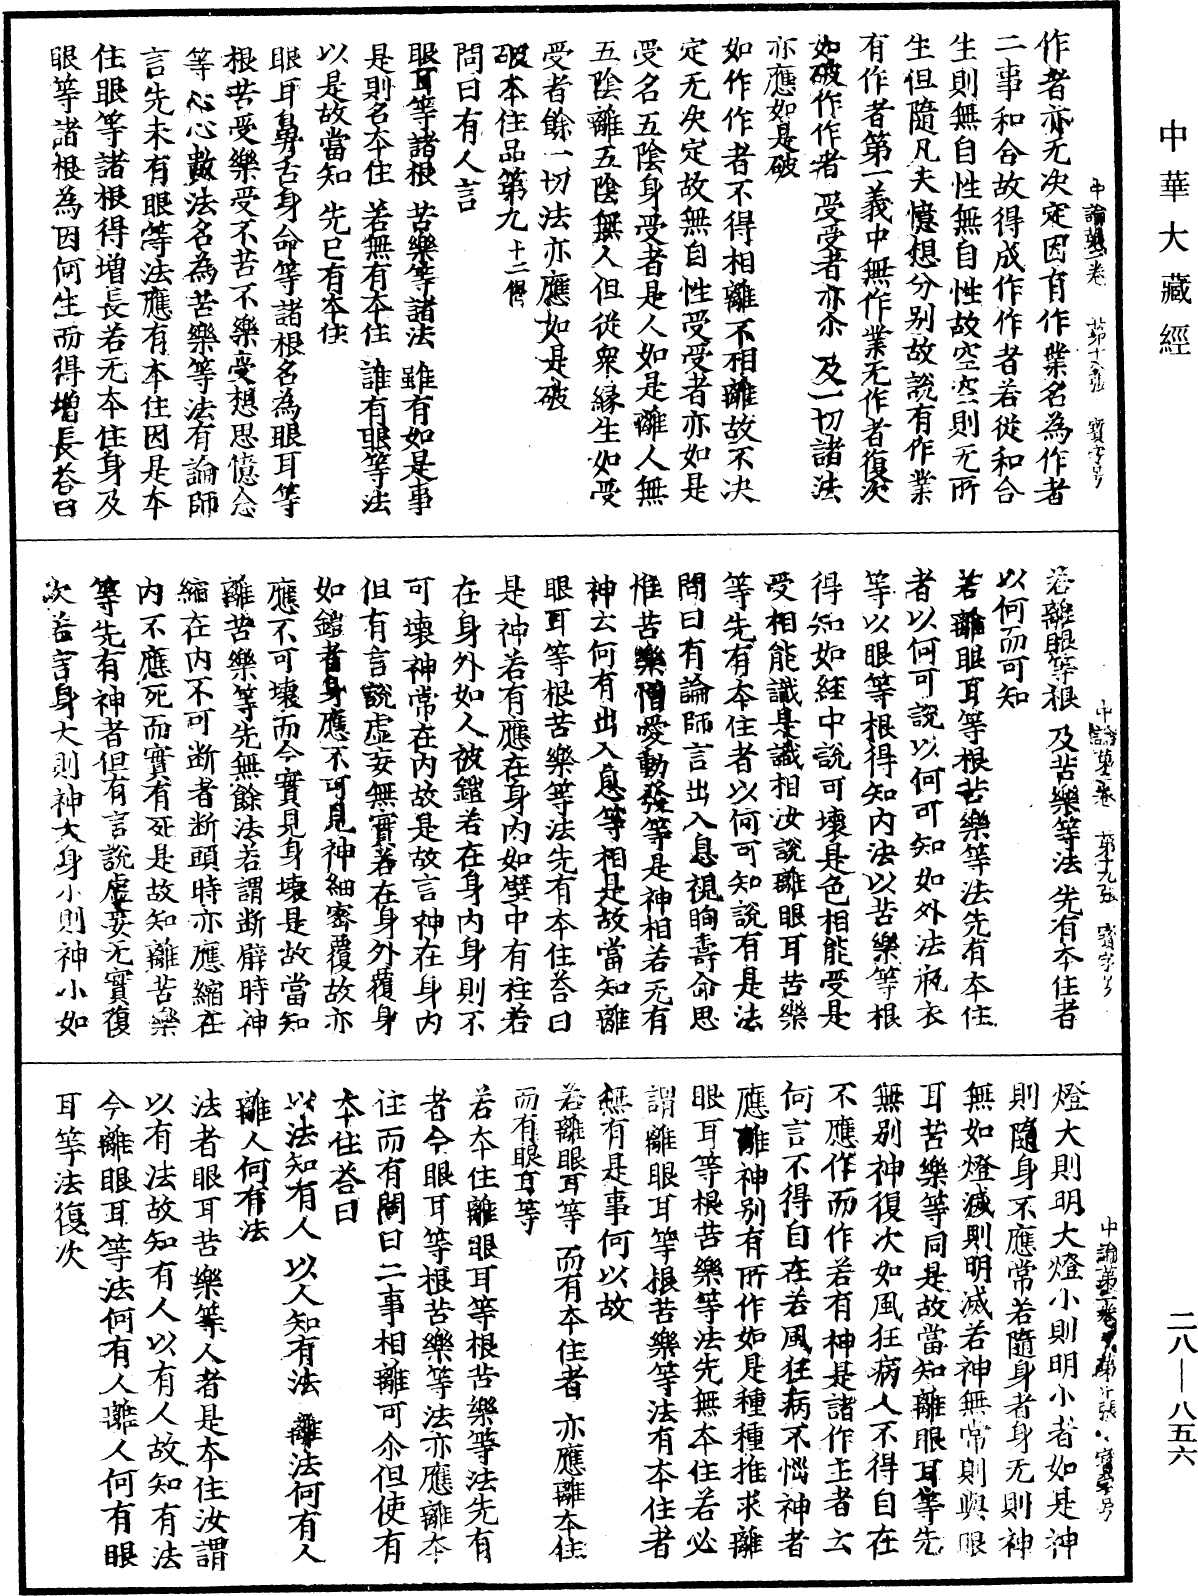 中華大藏經
二八—八五六
中論第二卷 第十八張 寶字号
作者亦无決定因有作業名為作者
二事和合故得成作作者若從和合
生則無自性無自性故空空則无所
生但隨凡夫憶想分別故說有作業
有作者第一義中無作業无作者復次
如破作作者 受受者亦尒 及一切諸法
亦應如是破
如作作者不得相離不相離故不決
定无決定故無自性受受者亦如是
受名五陰身受者是人如是離人無
五陰離五陰無人但從衆緣生如受
受者餘一切法亦應如是破
破本住品第九 十二偈
問曰有人言
眼耳等諸根 苦樂等諸法 雖有如是事
是則名本住 若無有本住 誰有眼等法
以是故當知 先已有本住
眼耳鼻舌身命等諸根名為眼耳等
根苦受樂受不苦不樂受想思憶念
等心心數法名為苦樂等法有論師
言先未有眼等法應有本住因是本
住眼等諸根得增長若无本住身及
眼等諸根為因何生而得增長荅曰
中論第二卷 第十九張 寶字号
若離眼等根 及苦樂等法 先有本住者
以何而可知
若離眼耳等根苦樂等法先有本住
者以何可說以何可知如外法瓶衣
等以眼等根得知內法以苦樂等根
得知如經中說可壞是色相能受是
受相能識是識相汝說離眼耳苦樂
等先有本住者以何可知說有是法
問曰有論師言出入息視眴壽命思
惟苦樂憎愛動發等是神相若无有
神云何有出入息等相是故當知離
眼耳等根苦樂等法先有本住荅曰
是神若有應在身內如壁中有柱若
在身外如人被鎧若在身內身則不
可壞神常在內故是故言神在身內
但有言說虛妄無實若在身外覆身
如鎧者身應不可見神細密覆故亦
應不可壞而今實見身壞是故當知
離苦樂等先無餘法若謂断臂時神
縮在內不可断者断頭時亦應縮在
內不應死而實有死是故知離苦樂
等先有神者但有言說虛妄无實復
次若言身大則神大身小則神小如
中論第二卷 第二十張 寶字号
燈大則明大燈小則明小者如是神
則隨身不應常若隨身者身无則神
無如燈滅則明滅若神無常則與眼
耳苦樂等同是故當知離眼耳等先
無別神復次如風狂病人不得自在
不應作而作若有神是諸作主者云
何言不得自在若風狂病不惱神者
應離神別有所作如是種種推求離
眼耳等根苦樂等法先無本住若必
謂離眼耳等根苦樂等法有本住者
無有是事何以故
若離眼耳等 而有本住者 亦應離本住
而有眼耳等
若本住離眼耳等根苦樂等法先有
者今眼耳等根苦樂等法亦應離本
住而有問曰二事相離可尒但使有
本住荅曰
以法知有人 以人知有法 離法何有人
離人何有法
法者眼耳苦樂等人者是本住汝謂
以有法故知有人以有人故知有法
今離眼耳等法何有人離人何有眼
耳等法復次